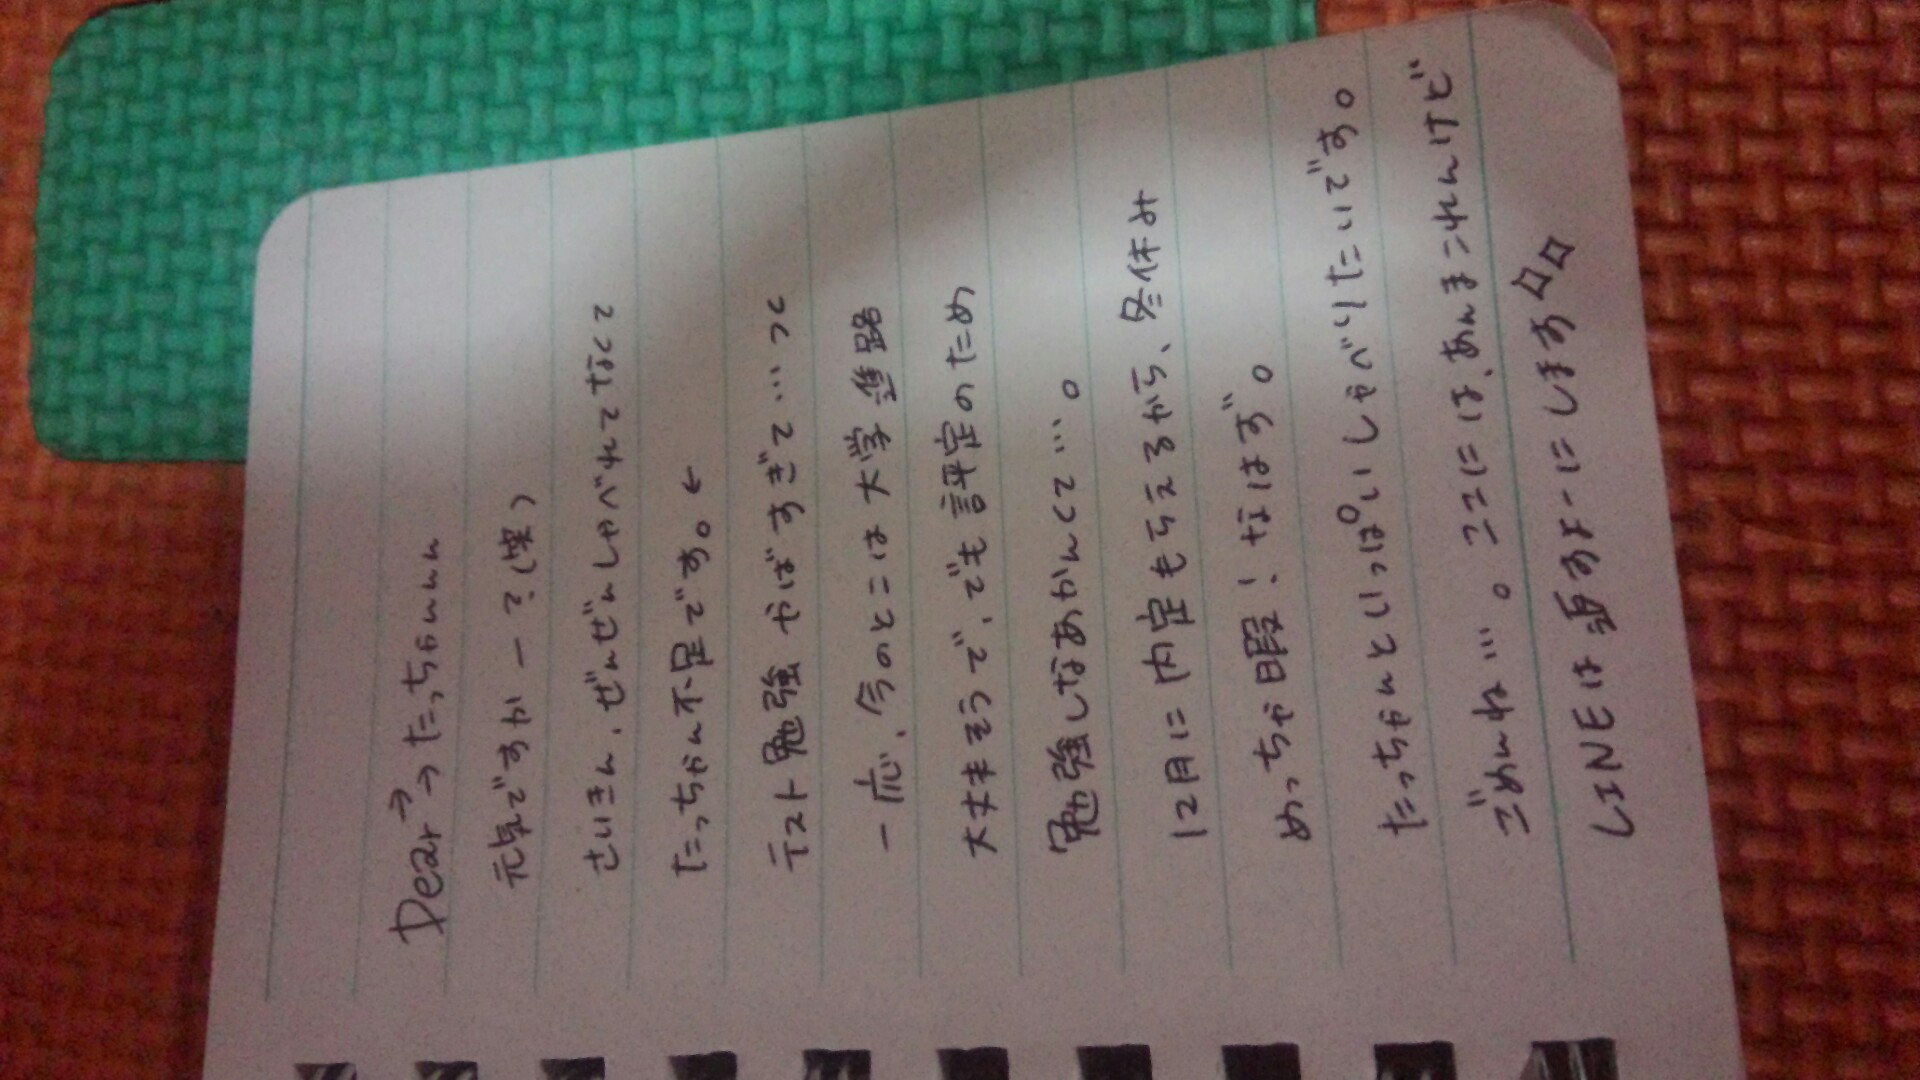 Dear→→たっちゃんんん
元気ですかー？(笑)
さいきん、ぜんぜんしゃべれてなくて
たっちゃん不足です。←
テスト勉強やばすぎて…つ＜
一応、今のとこは大学進路
大丈夫そうで、でも評定のため
勉強しなあかんくて…。
12月に内定もらえるから、冬休み
めっちゃ暇！なはず。
たっちゃんといっぱいしゃべりたいです。
ごめんね…。ここには、あんまこれんけど
LINEは返すよーにします